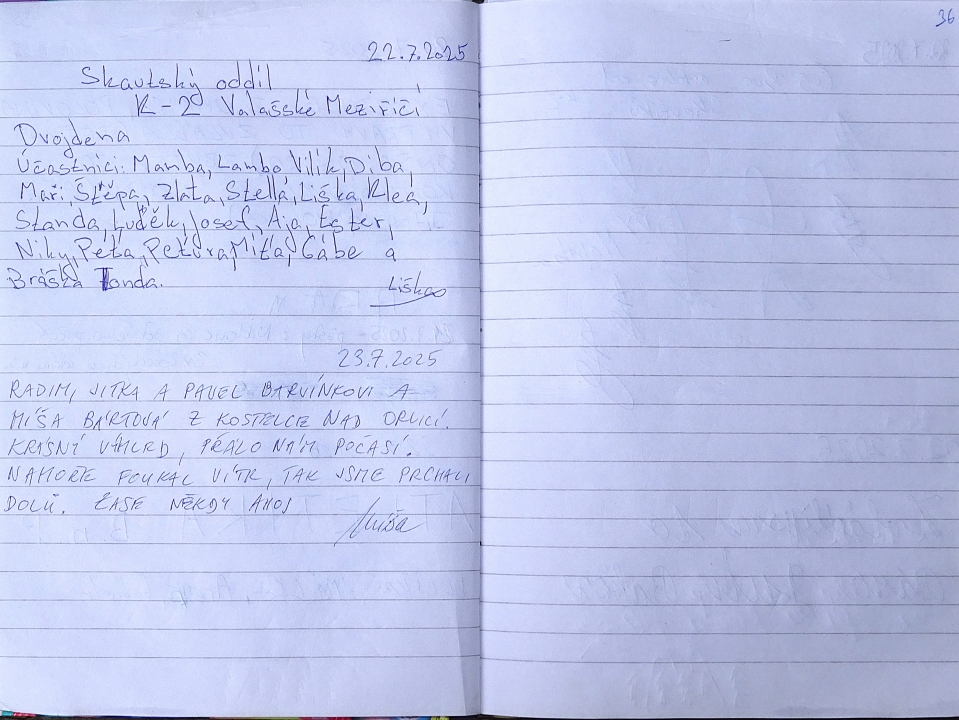 36
22.7.2025
Skautský oddíl
K-2 Valašské Meziříčí
Dvojdena
Účastníci: Mamba, Lambo, Vilík, Diba,
Maří, Štěpa, Zlata, Stella, Liška, Klea,
Standa, Luděk, Josef, Aja, Ester,
Niky, Péťa, Peťura, Míťa, Gábe a
Bráška Tonda.
Liška
23.7.2025
RADIM, JITKA A PAVEL BARVÍNKOVI A
MÍŠA BÁRTOVÁ Z KOSTELCE NAD ORLICÍ.
KRÁSNÝ VÝHLED, PŘÁLO NÁM POČASÍ.
NAHOŘE FOUKAL VÍTR, TAK JSME PRCHALI
DOLŮ. ZASE NĚKDY AHOJ
Míša